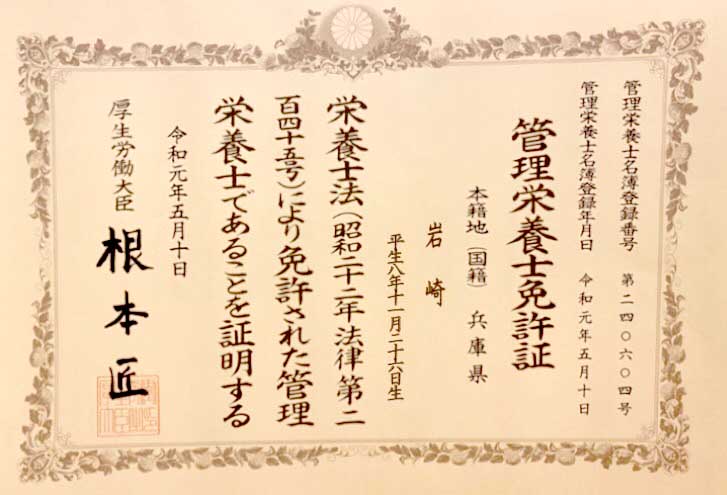 管理栄養士名簿登録番号 第二四〇六〇四号
管理栄養士名簿登録年月日 令和元年五月十日
管理栄養士免許証
本籍地(国籍) 兵庫県
岩崎
平生八年十一月二十六日生
栄養士法(昭和二十二年法律第二
百四十五号)により免許された管理
栄養士であることを証明する
令和元年五月十日
厚生労働大臣 根本匠